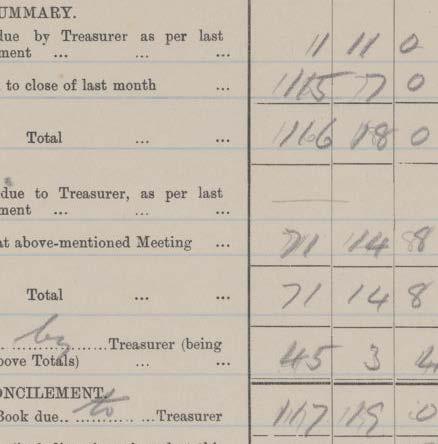 UMMARY.
due by Treasurer as per last
ment ... ... ... 1 11 0
to close of last month ... 115 7 0
Total ... ... 116 18 0
due to Treasurer, as per last
ment ... ... ...
at above-mentioned Meeting ... 71 14 8
Total ... ... 71 14 8
by Treasurer (being
bove Totals) ... ... 45 3 4
ONCILEMENT.
Book due to Treasurer 117 19 0